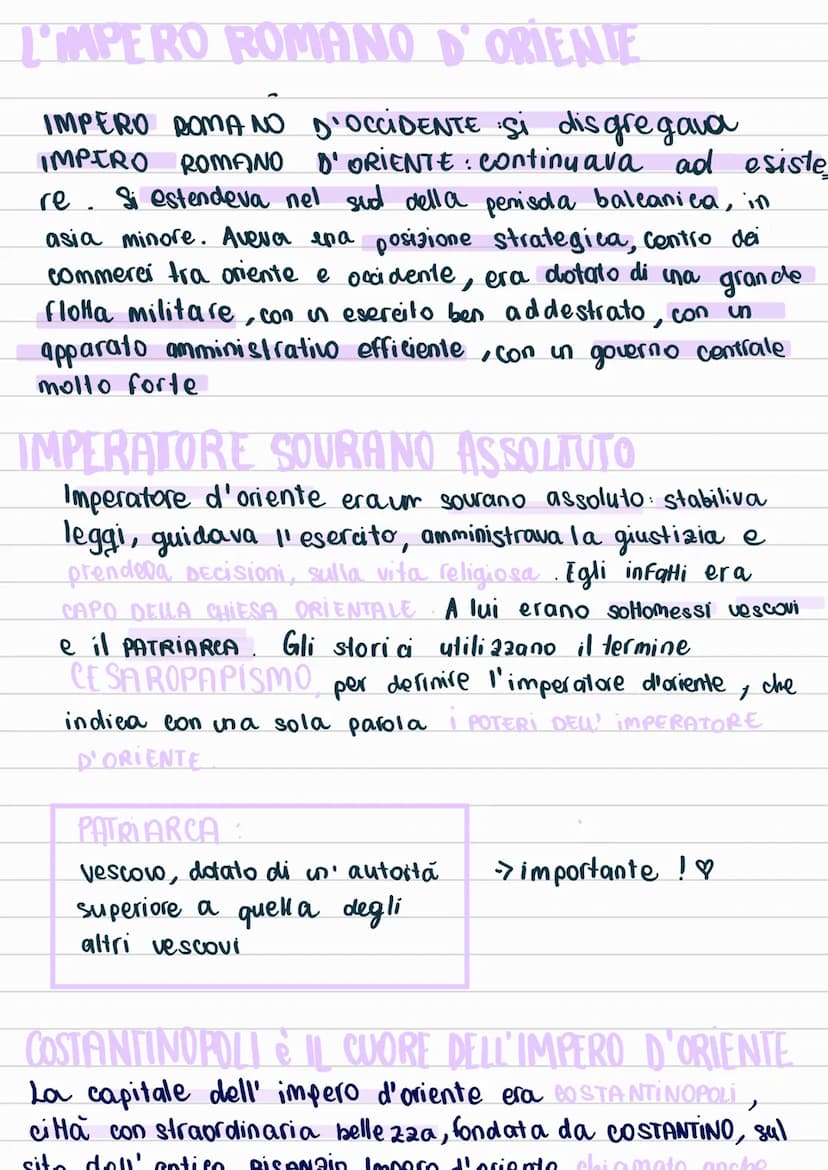 L'IMPERO ROMANO D'ORIENTE
IMPERO ROMANO D'OCCIDENTE : si disgregava
IMPERO ROMANO D'ORIENTE : continuava ad esiste
re . Si estendeva nel sud della penisola balcanica, in
asia minore. Aveva una posizione strategica, centro dei
commerci tra oriente e occidente, era dotato di una grande
flotta militare, con un esercito ben addestrato, con un
apparato amministrativo efficiente, con un governo centrale
molto forte
IMPERATORE SOVRANO ASSOLTUTO
Imperatore d'oriente era un sovrano assoluto: stabiliva
leggi, guidava l'esercito, amministrava la giustizia e
prendeva DECISIONI, sulla vita religiosa. Egli infatti era
CAPO DELLA CHIESA ORIENTALE. A lui erano sottomessi vescovi
e il PATRIARCA. Gli storici utilizzano il termine
CESAROPAPISMO, per definire l'imperatore d'oriente, che
indica con una sola parola i POTERI DELL'IMPERATORE
D'ORIENTE.
PATRIARCA :
vescovo, dotato di un' autorità -> importante ! ♡
superiore a quella degli
altri vescovi
COSTANTINOPOLI è IL CUORE DELL'IMPERO D'ORIENTE
La capitale dell' impero d'oriente era COSTANTINOPOLI,
città con straordinaria bellezza, fondata da COSTANTINO, sul
sito dell' antica BISANZIO. Impero d'oriente chiamato anche